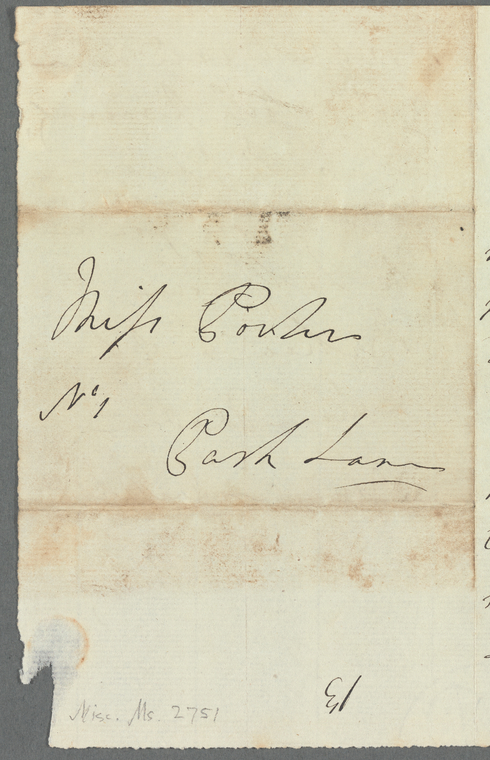 Miss Porter
No 1
Park Lane
13
Misc. Ms. 2751